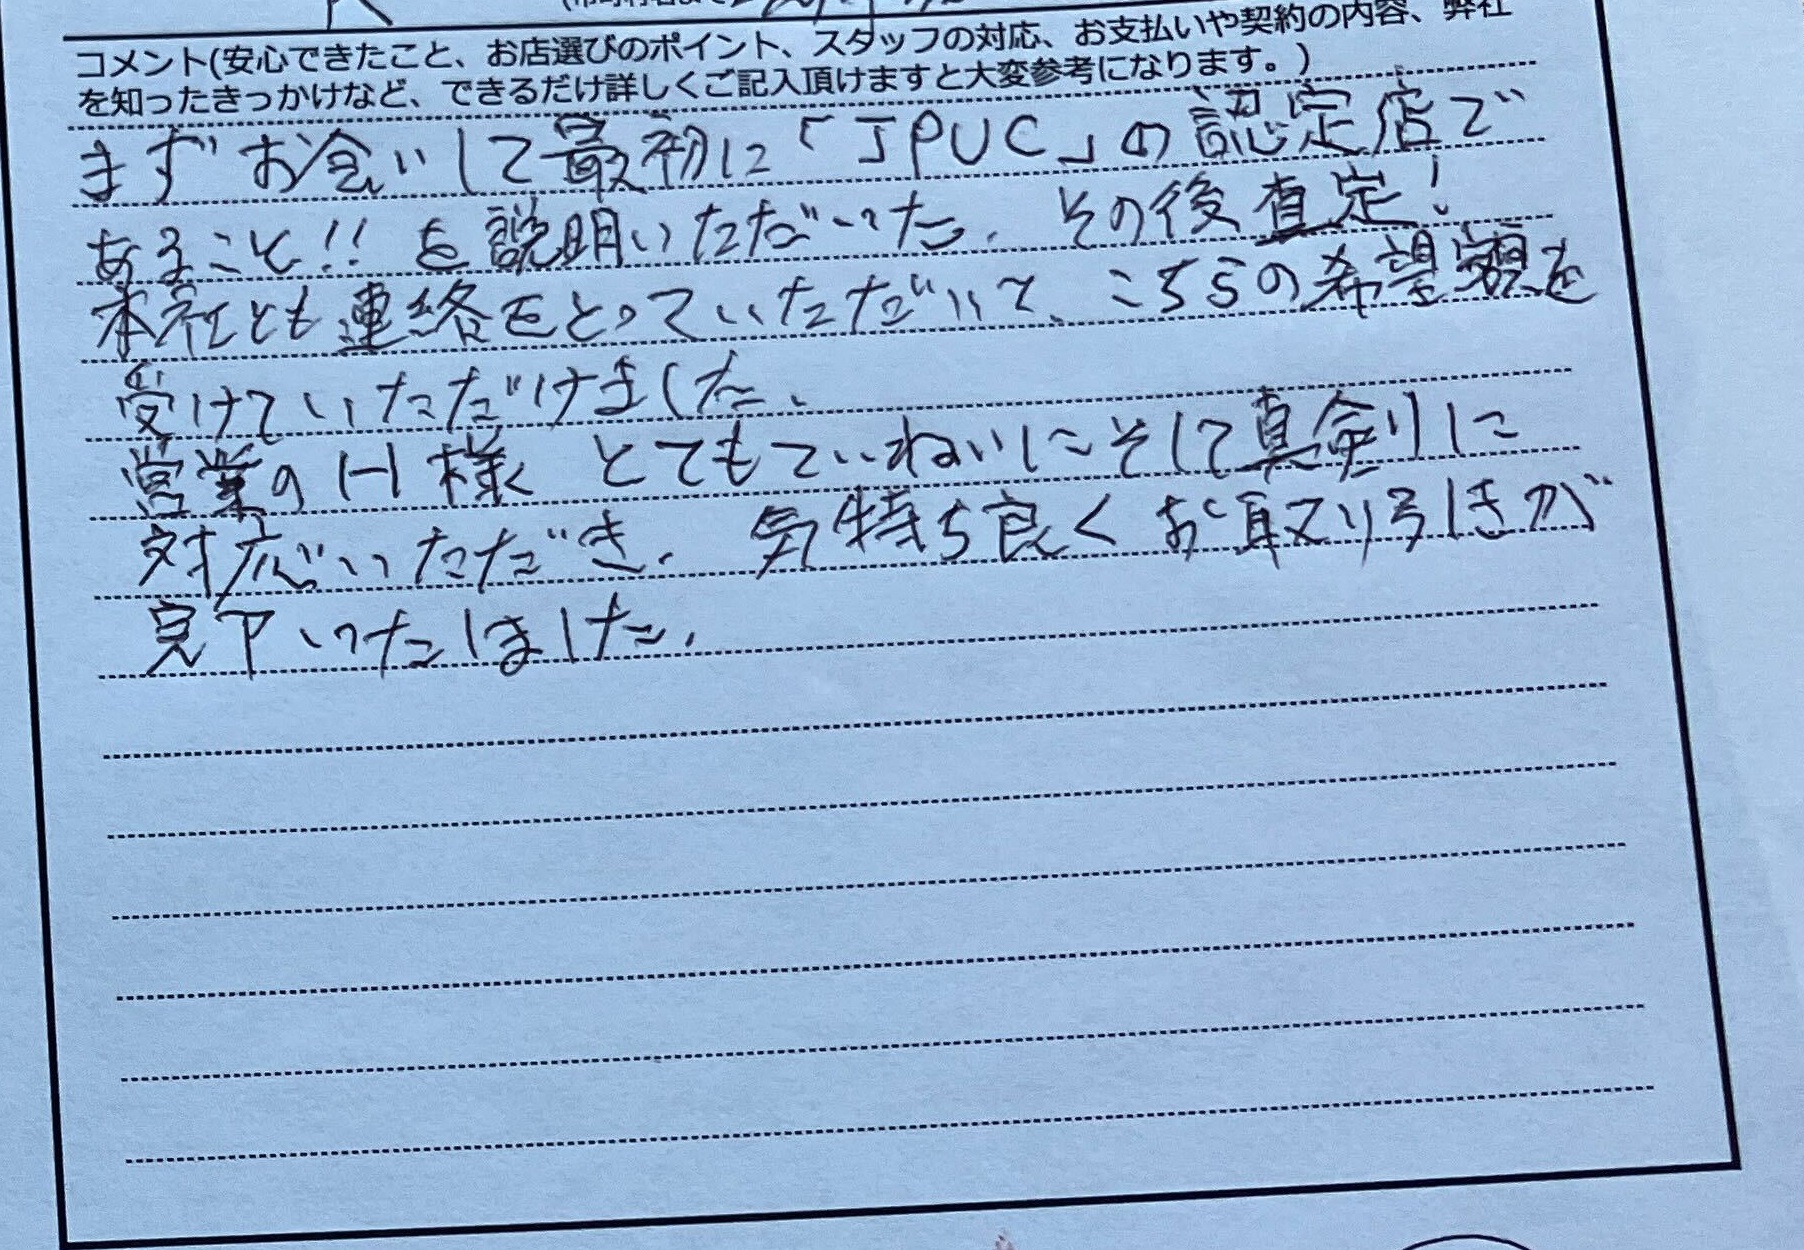 コメント(安心できたこと、お店選びのポイント、スタッフの対応、お支払いや契約の内容、弊社
を知ったきっかけなど、できるだけ詳しくご記入頂けますと大変参考になります。)
まずお会いして最初に「JPUC」の認定店で
あること!!を説明いただいた。その後査定!
本社とも連絡をとっていただいて、こちらの希望額を
受けていただけました。
営業のH様 とてもていねいにそして真剣に
対応いただき、気持ち良くお取り引きが
完了いたしました。